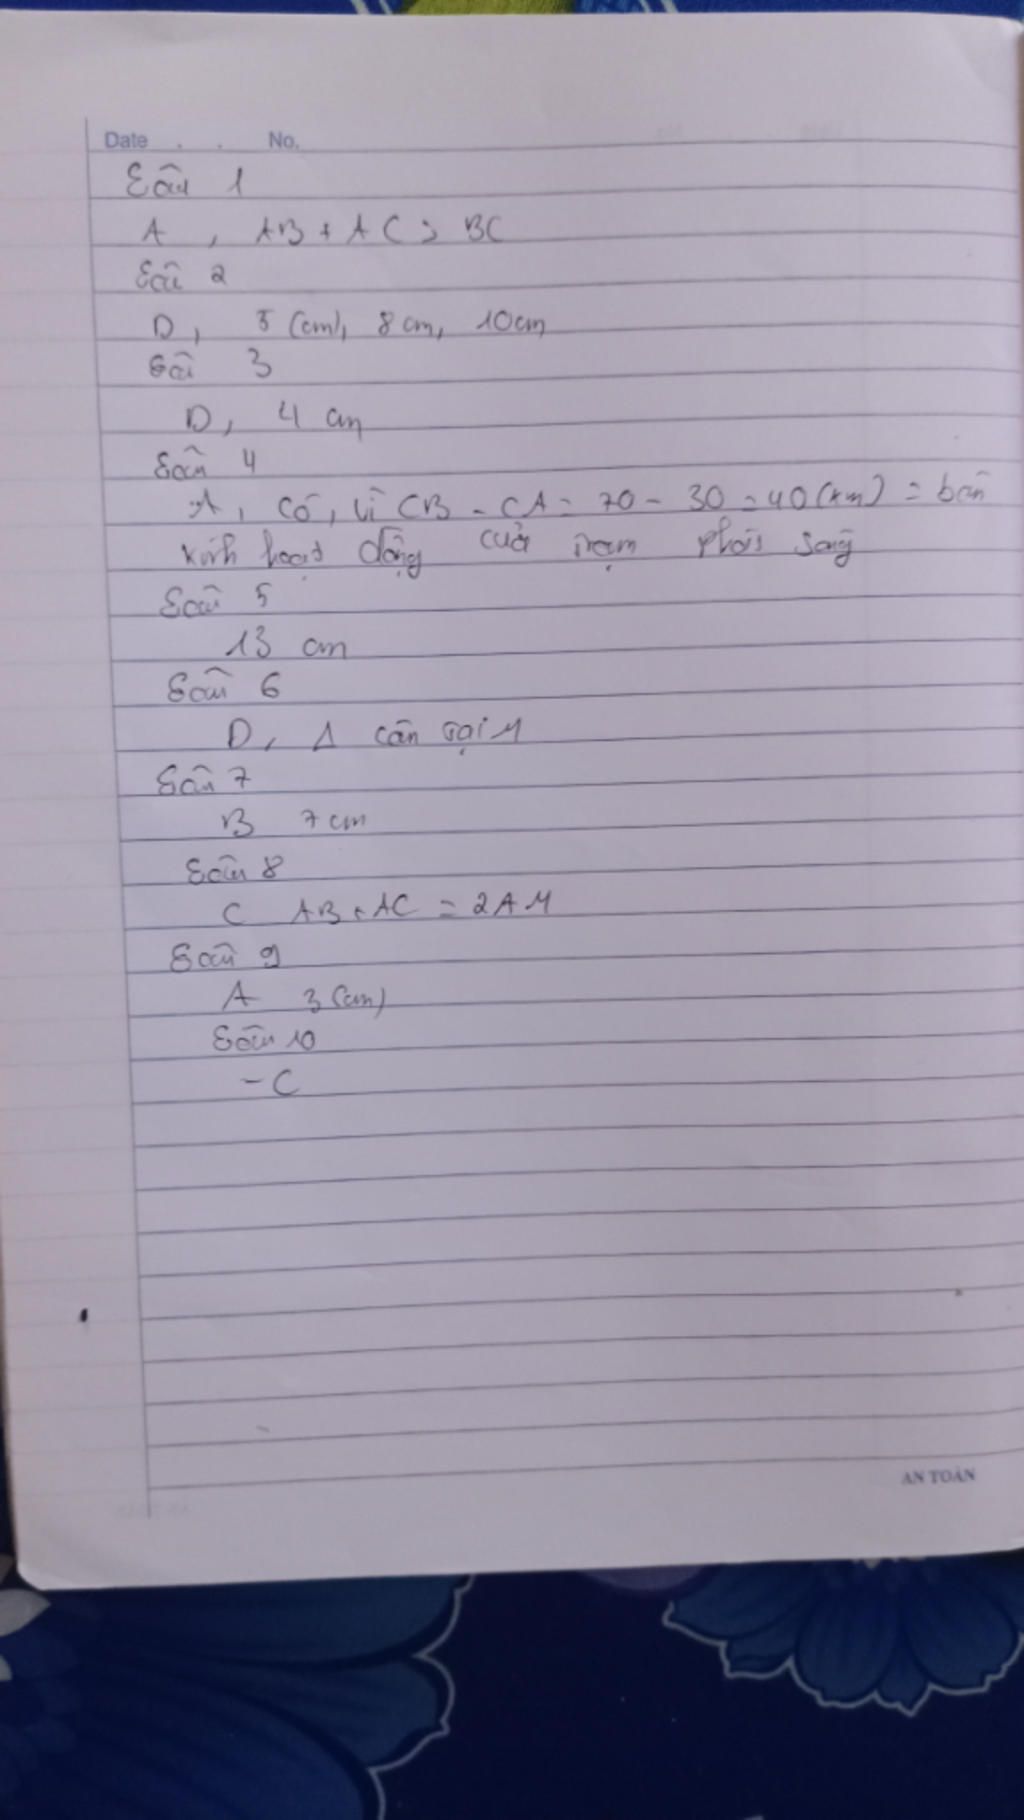 Date . . No.
Câu 1
A, AB + AC > BC
Câu 2
D, 5 (cm), 8 cm, 10cm
Câu 3
D, 4 cm
Câu 4
A, Có, vì CB - CA = 70 - 30 = 40 (km) = bán
kính hoạt động của trạm phát sóng
Câu 5
13 cm
Câu 6
D, Δ cân tại M
Câu 7
B 7 cm
Câu 8
C AB + AC = 2AM
Câu 9
A 3 (cm)
Câu 10
- C
AN TOÀN